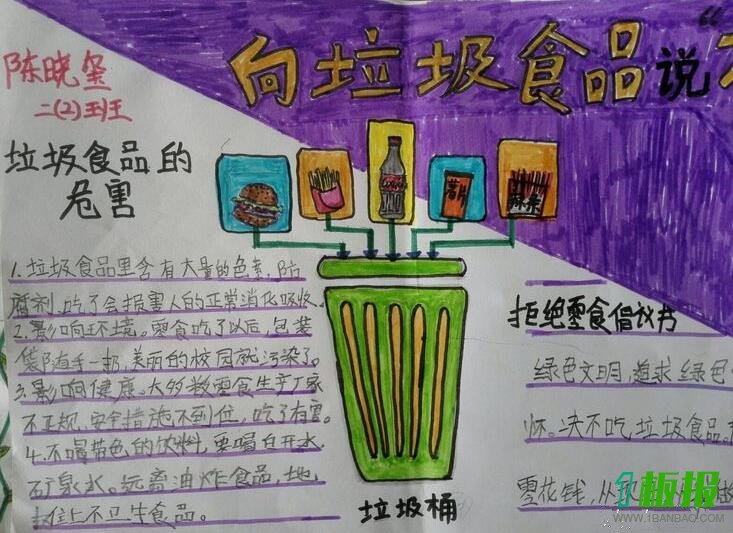 向垃圾食品说“
陈晓玺
二(2)班
垃圾食品的
危害
薯片
辣条
1.垃圾食品里含有大量的色素,防
腐剂,吃了会损害人的正常消化吸收。
2.影响环境。零食吃了以后,包装
袋随手一扔,美丽的校园就污染了。
3.影响健康。大多数零食生产厂家
不正规,安全措施不到位,吃了有害。
4.不喝带色的饮料,要喝白开水
矿泉水。远离油炸食品,地
摊上不卫生食品。
垃圾桶
拒绝零食倡议书
绿色文明,追求绿色
怀。决不吃垃圾食品。
零花钱,从
1板报
WWW.1BANBAO.COM